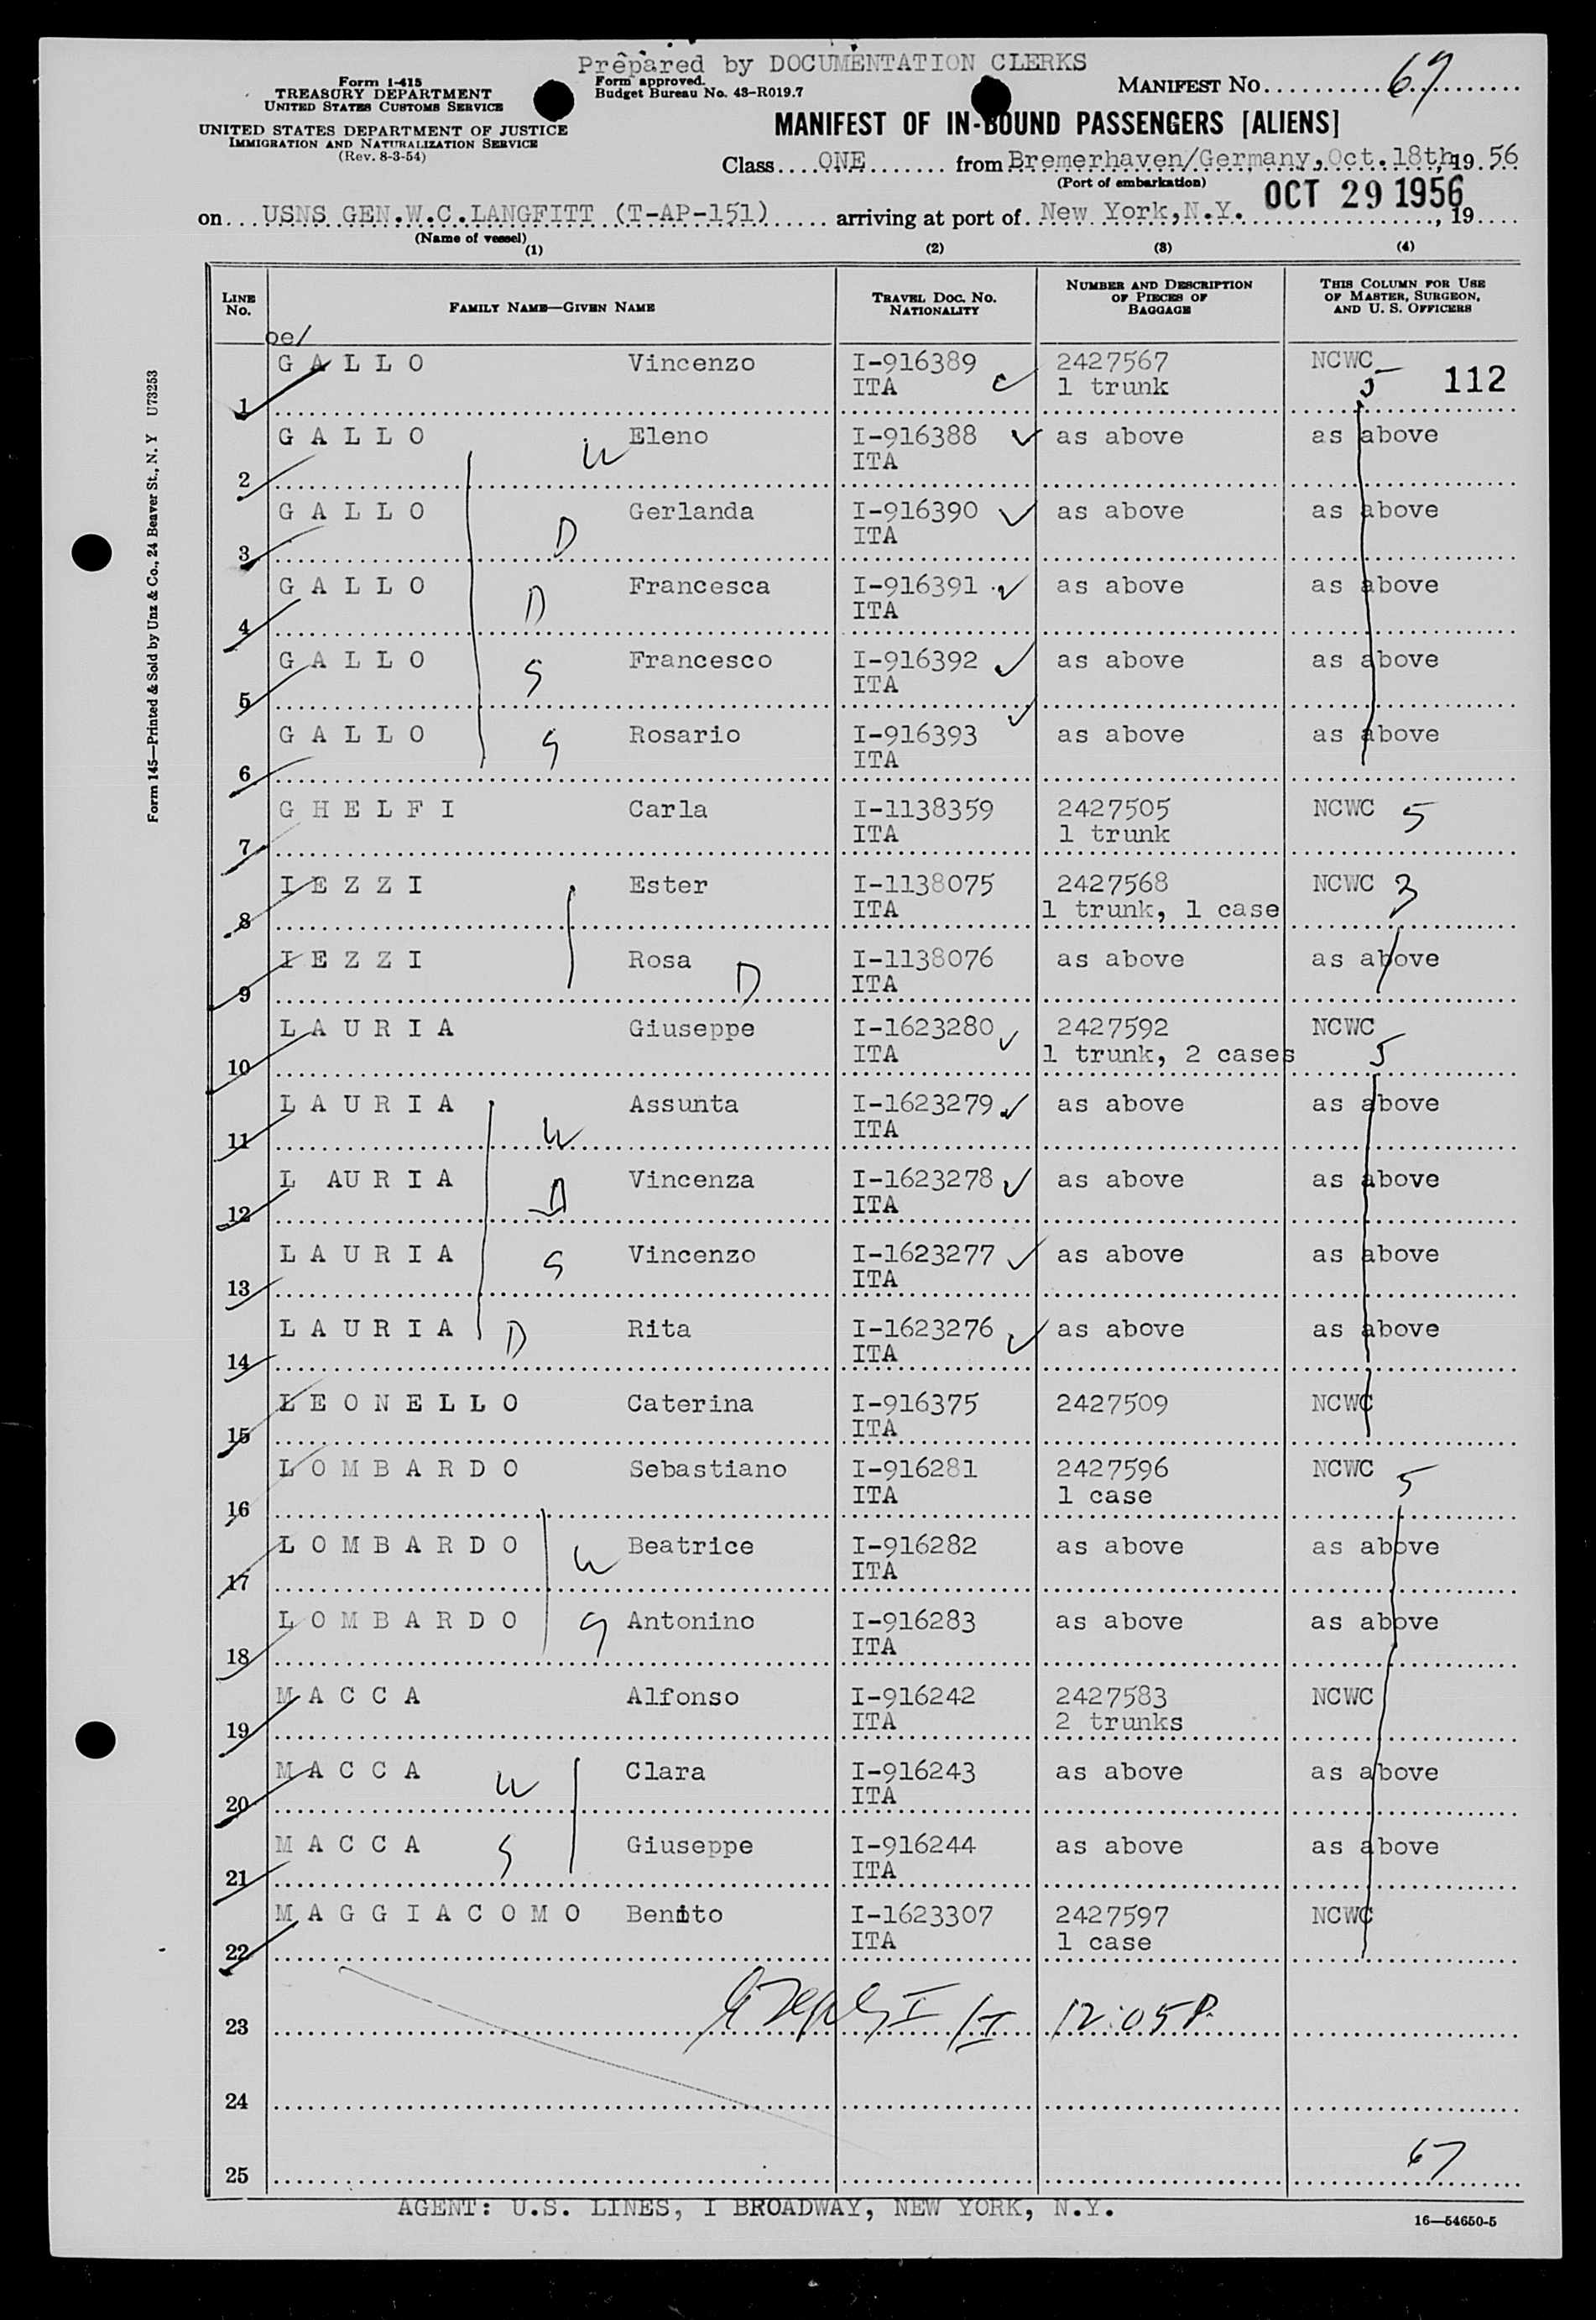 Prepared by DOCUMENTATION CLERKS
Form I-415
TREASURY DEPARTMENT
UNITED STATES CUSTOMS SERVICE
UNITED STATES DEPARTMENT OF JUSTICE
IMMIGRATION AND NATURALIZATION SERVICE
(Rev. 8-3-54)
Form approved.
Budget Bureau No. 43-R019.7
MANIFEST NO. 69
MANIFEST OF IN-BOUND PASSENGERS [ALIENS]
Class ONE from Bremerhaven/Germany, Oct. 18th, 19 56
(Port of embarkation)
on USNS GEN.W.C.LANGFITT (T-AP-151) arriving at port of New York, N.Y. OCT 29 1956, 19
(Name of vessel)
(1) (2) (3) (4)
LINE NO. FAMILY NAME—GIVEN NAME TRAVEL DOC. NO. NATIONALITY NUMBER AND DESCRIPTION OF PIECES OF BAGGAGE THIS COLUMN FOR USE OF MASTER, SURGEON, AND U. S. OFFICERS
oe/
1 GALLO Vincenzo I-916389 ITA 2427567 1 trunk NCWC 5 112
2 GALLO W Eleno I-916388 ITA as above as above
3 GALLO D Gerlanda I-916390 ITA as above as above
4 GALLO D Francesca I-916391 ITA as above as above
5 GALLO S Francesco I-916392 ITA as above as above
6 GALLO S Rosario I-916393 ITA as above as above
7 GHELFI Carla I-1138359 ITA 2427505 1 trunk NCWC 5
8 IEZZI Ester I-1138075 ITA 2427568 1 trunk, 1 case NCWC 3
9 IEZZI Rosa D I-1138076 ITA as above as above
10 LAURIA Giuseppe I-1623280 ITA 2427592 1 trunk, 2 cases NCWC 5
11 LAURIA W Assunta I-1623279 ITA as above as above
12 L AURIA D Vincenza I-1623278 ITA as above as above
13 LAURIA S Vincenzo I-1623277 ITA as above as above
14 LAURIA D Rita I-1623276 ITA as above as above
15 LEONELLO Caterina I-916375 ITA 2427509 NCWC
16 LOMBARDO Sebastiano I-916281 ITA 2427596 1 case NCWC 5
17 LOMBARDO W Beatrice I-916282 ITA as above as above
18 LOMBARDO S Antonino I-916283 ITA as above as above
19 MACCA Alfonso I-916242 ITA 2427583 2 trunks NCWC
20 MACCA W Clara I-916243 ITA as above as above
21 MACCA S Giuseppe I-916244 ITA as above as above
22 MAGGIACOMO Benito I-1623307 ITA 2427597 1 case NCWC
23 12:05 P.
24
25 67
AGENT: U.S. LINES, I BROADWAY, NEW YORK, N.Y.
16—54650-5
Form 145—Printed & Sold by Unz & Co., 24 Beaver St., N. Y U73253